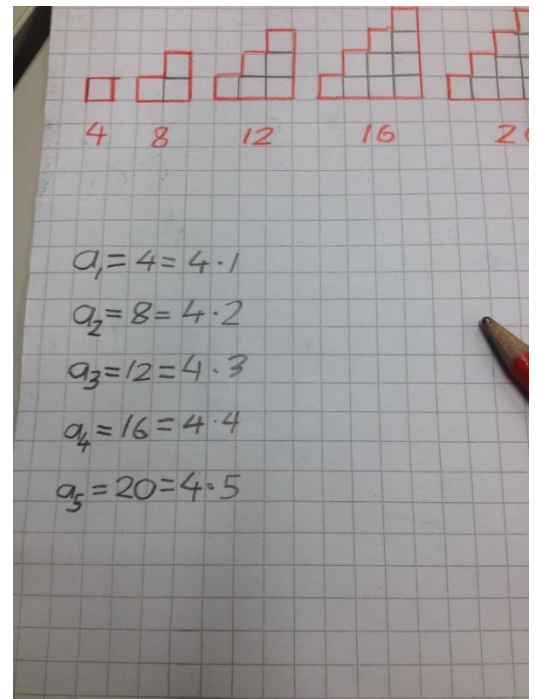 4 8 12 16 2
a₁ = 4 = 4 · 1
a₂ = 8 = 4 · 2
a₃ = 12 = 4 · 3
a₄ = 16 = 4 · 4
a₅ = 20 = 4 · 5